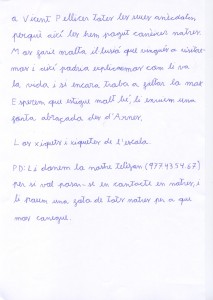 a Vicent Pellicer totes les seues anècdotes,
perquè així les hem pogut conèixer natres.
Mos faria molta il·lusió que vingués a visitar-
mos i així podria explicarmos com li va
la vida, i si encara troba a faltar la mar.
Esperem que estigue molt bé, li enviem una
forta abraçada des d'Arnes,
Los xiquets i xiquetes de l'escola.
PD: Li donem la nostre telèfon (977435467)
per si vol posar-se en contacte en natres, i
li posem una foto de tots natres per a que
mos conegue.